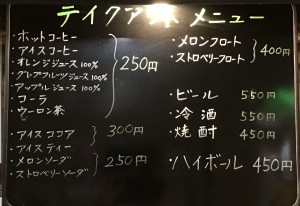 テイクアウト メニュー
・ホットコーヒー
・アイスコーヒー
・オレンジジュース 100%
・グレープフルーツジュース 100%
・アップルジュース 100%
・コーラ
・ウーロン茶
250円
・アイスココア
・アイスティー
300円
・メロンソーダ
・ストロベリーソーダ
250円
・メロンフロート
・ストロベリーフロート
400円
・ビール 550円
・冷酒 550円
・焼酎 450円
・ハイボール 450円